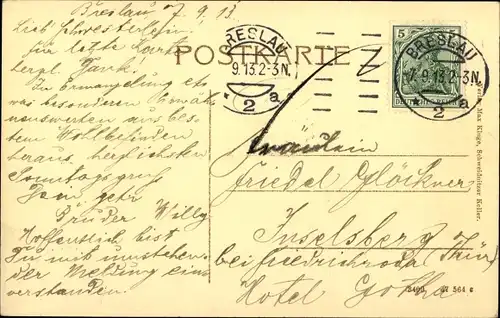 Breslau, 7.9.13
Lieb Schwesterlein
für letzte Karte
herzl. Dank.
In Ermangelung etw
was besonderen Erwäh
nenswerten aus bes
tem Wohlbefinden
heraus, herzlichsten
Sonntagsgruß
Dein getr.
Bruder Willy
Hoffentlich bist
Du mit umstehen
der Meldung ein
verstanden.
POSTKARTE
BRESLAU
9.13.2-3N.
* 2 a
5
BRESLAU
-7.9.13.2-3N.
* 2 a
DEUTSCHES REICH
Fräulein
Friedel Glöckner
Inselsberg
bei Friedrichroda (Thür)
Hotel Gotha
Max Kluge, Schweidnitzer Keller.
364 c